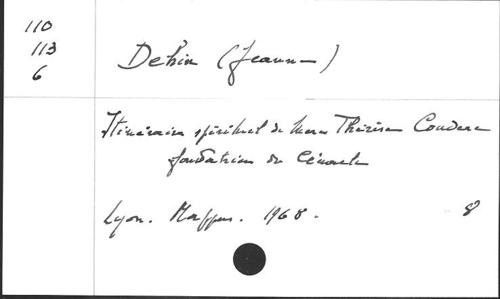 110
113
6
Dehin (Jeanne)
Itinéraire spirituel de Mère Thérèse Couderc
fondatrice du Cénacle
Lyon. Mappus. 1968.
8